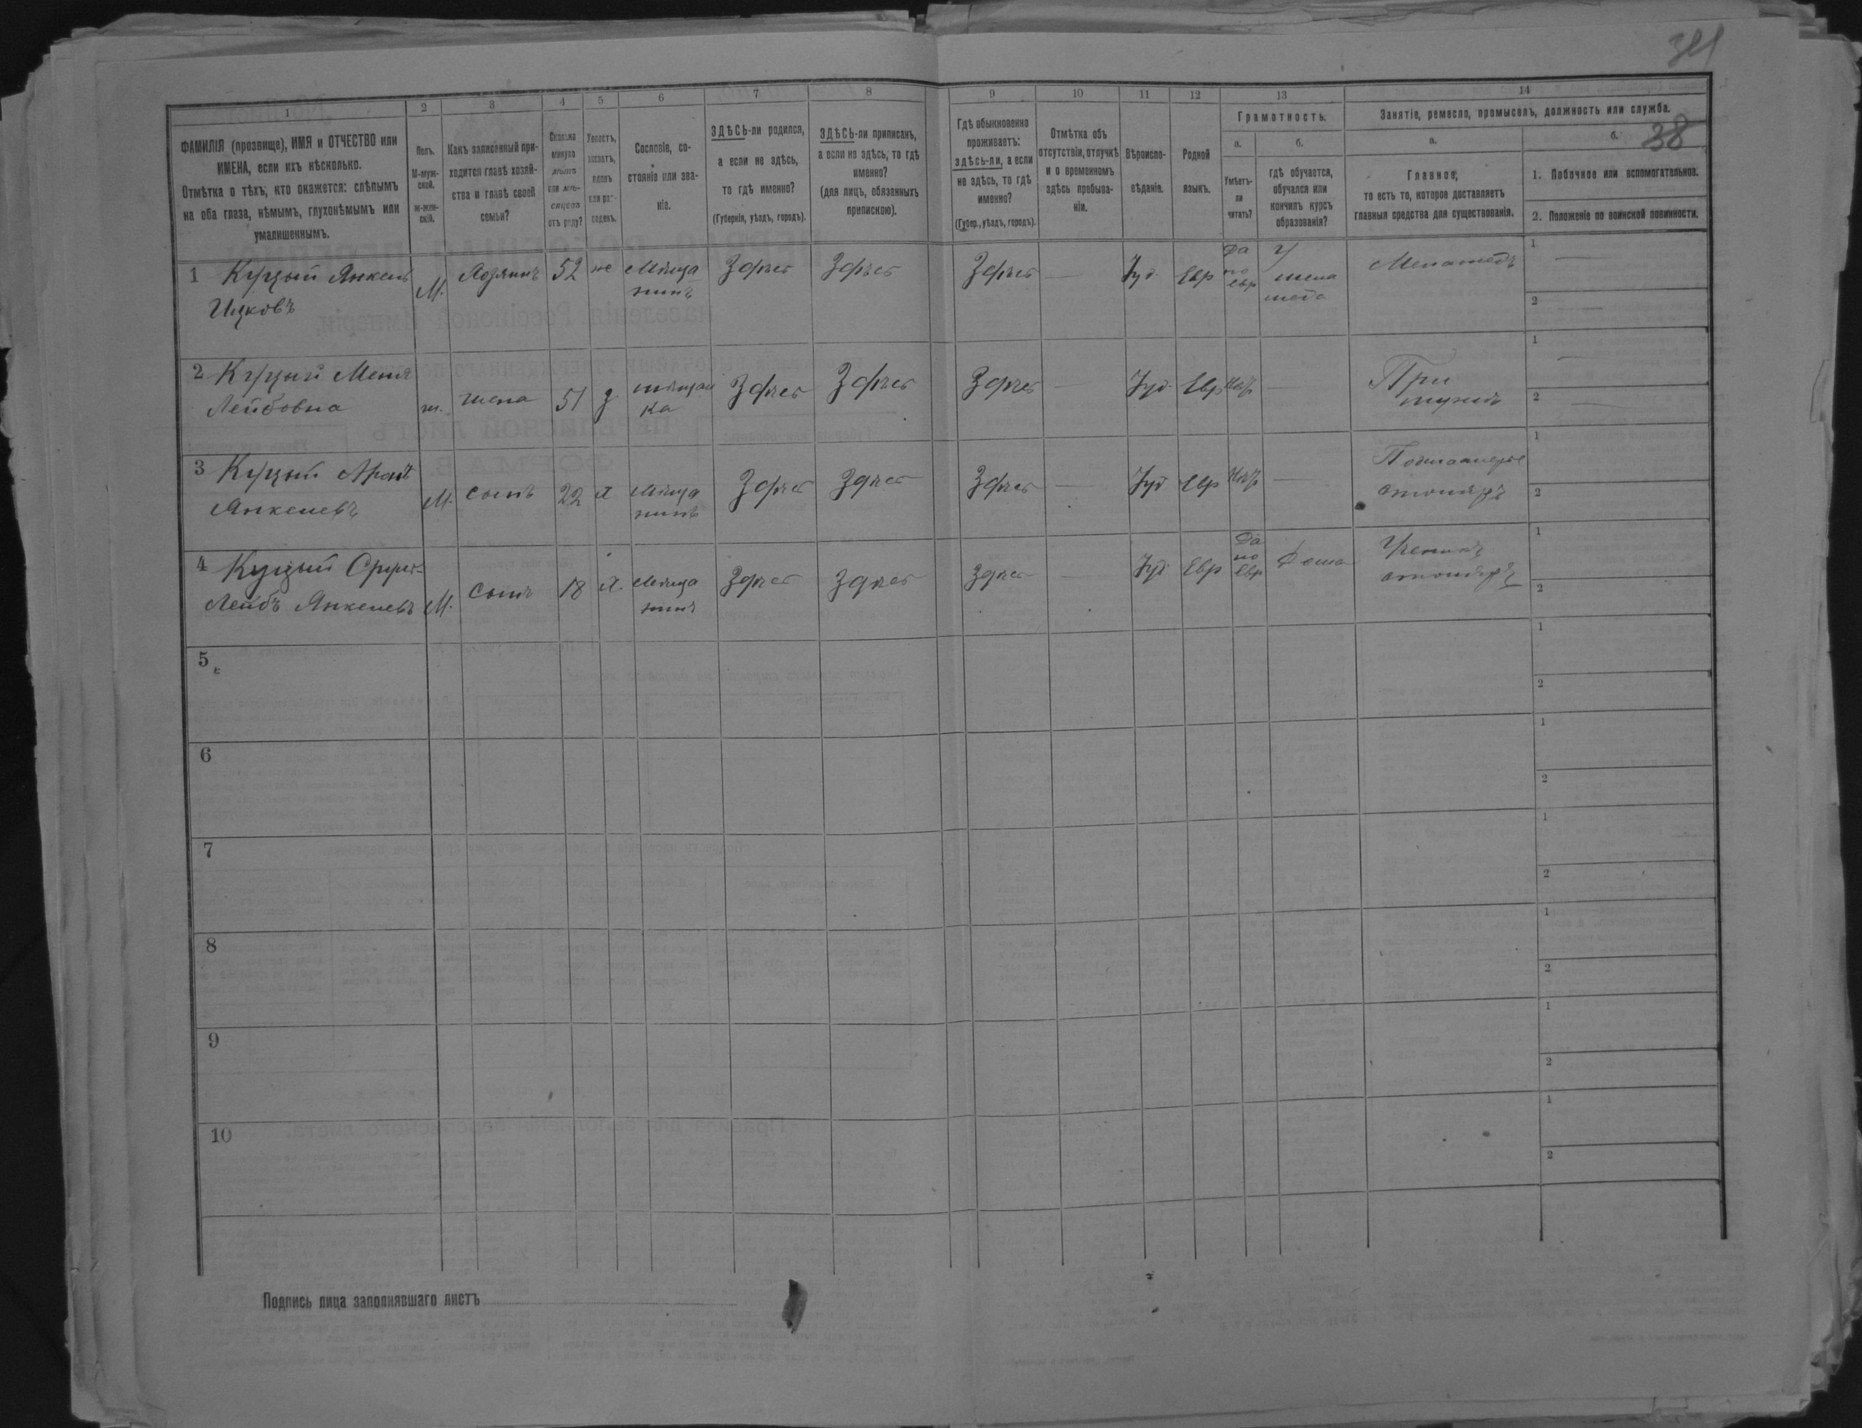 38
1 2 3 4 5 6 7 8 9 10 11 12 13 14
ФАМИЛІЯ (прозвище), ИМЯ и ОТЧЕСТВО или
ИМЕНА, если ихъ нѣсколько.
Отмѣтка о тѣхъ, кто окажется: слѣпымъ
на оба глаза, нѣмымъ, глухонѣмымъ или
умалишеннымъ.
Полъ.
М-муж-
ской.
ж-жен-
скій.
Какъ записанный при-
ходится главѣ хозяй-
ства и главѣ своей
семьи?
Сколько
минуло
лѣтъ
или мѣ-
сяцевъ
отъ роду?
Холостъ,
женатъ,
вдовъ
или раз-
веденъ.
Сословіе, со-
стояніе или зва-
ніе.
ЗДѢСЬ-ли родился,
а если не здѣсь,
то гдѣ именно?
(Губернія, уѣздъ, городъ).
ЗДѢСЬ-ли приписанъ,
а если не здѣсь, то гдѣ
именно?
(для лицъ, обязанныхъ
припискою).
Гдѣ обыкновенно
проживаетъ:
здѣсь-ли, а если
не здѣсь, то гдѣ
именно?
(Губер., уѣздъ, городъ).
Отмѣтка объ
отсутствіи, отлучкѣ
и о временномъ
здѣсь пребыва-
ніи.
Вѣроиспо-
вѣданіе.
Родной
языкъ.
Грамотность.
а.
Умѣетъ-
ли
читать?
б.
гдѣ обучается,
обучался или
кончилъ курсъ
образованія?
Занятіе, ремесло, промыселъ, должность или служба.
а.
Главное,
то есть то, которое доставляетъ
главныя средства для существованія.
б.
1. Побочное или вспомогательное.
2. Положеніе по воинской повинности.
1 Куцый Янкель
Ицковъ М. Хозяинъ 52 ж Мѣща
нинъ Здѣсь Здѣсь Здѣсь — Іуд Евр Да
по
евр У
мела
меда Меламедъ 1 —
2 —
2 Куцый Меня
Лейбовна ж. жена 51 з мѣщан
ка Здѣсь Здѣсь Здѣсь — Іуд Евр Нѣт — При
мужѣ 1 —
2 —
3 Куцый Аронъ
Янкелевъ М. сынъ 22 х Мѣща
нинъ Здѣсь Здѣсь Здѣсь — Іуд Евр Нѣт — Подмастерье
столяръ 1
2
4 Куцый Сруль-
Лейбъ Янкелевъ М. сынъ 18 х. Мѣща
нинъ Здѣсь Здѣсь Здѣсь — Іуд Евр Да
по
Евр Дома Ученикъ
столяръ 1
2
5 1
2
6 1
2
7 1
2
8 1
2
9 1
2
10 1
2
Подпись лица заполнявшаго листъ